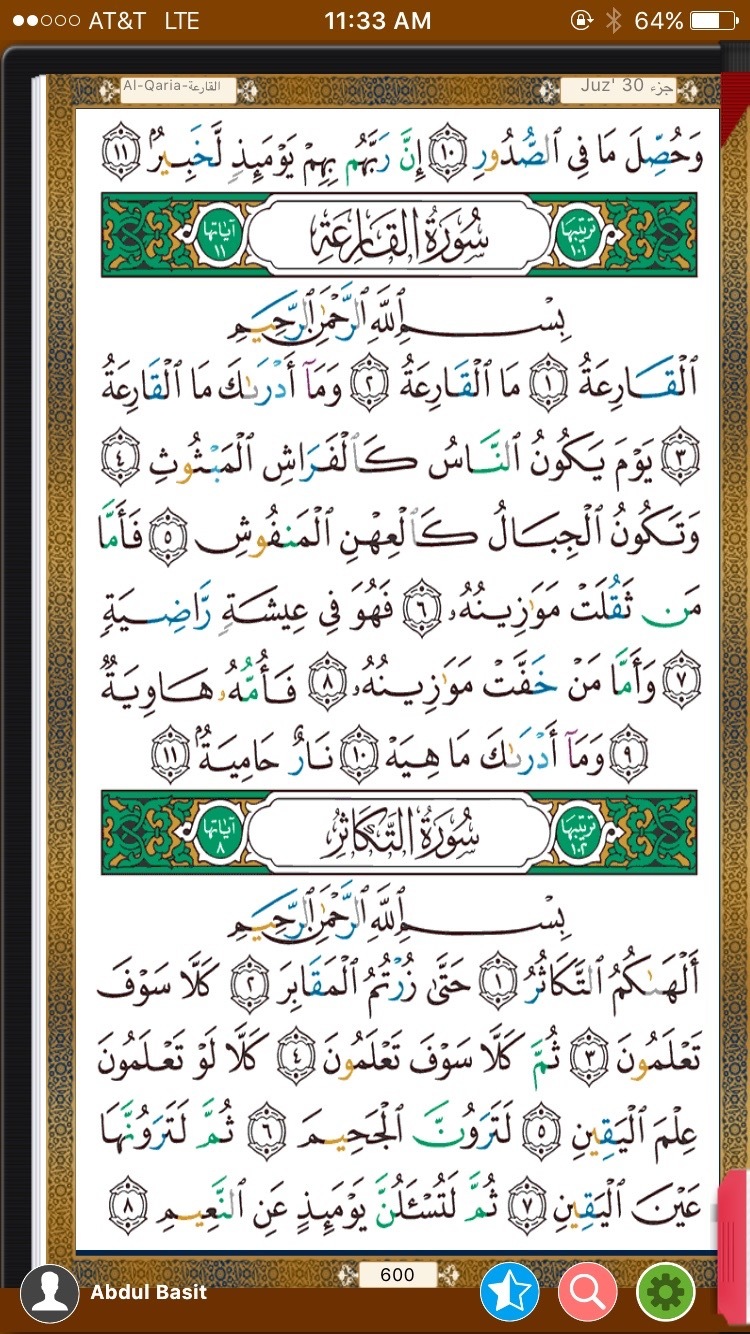 AT&T LTE 11:33 AM 64%
Al-Qaria-القارعة Juz' 30 جزء
وَحُصِّلَ مَا فِى ٱلصُّدُورِ ١٠ إِنَّ رَبَّهُم بِهِمْ يَوْمَئِذٍ لَّخَبِيرٌۢ ١١
ترتيبها ١٠١ سُورَةُ القَارِعَةِ آياتها ١١
بِسْمِ ٱللَّهِ ٱلرَّحْمَٰنِ ٱلرَّحِيمِ
ٱلْقَارِعَةُ ١ مَا ٱلْقَارِعَةُ ٢ وَمَآ أَدْرَىٰكَ مَا ٱلْقَارِعَةُ
٣ يَوْمَ يَكُونُ ٱلنَّاسُ كَٱلْفَرَاشِ ٱلْمَبْثُوثِ ٤
وَتَكُونُ ٱلْجِبَالُ كَٱلْعِهْنِ ٱلْمَنفُوشِ ٥ فَأَمَّا
مَن ثَقُلَتْ مَوَٰزِينُهُۥ ٦ فَهُوَ فِى عِيشَةٍ رَّاضِيَةٍ
٧ وَأَمَّا مَنْ خَفَّتْ مَوَٰزِينُهُۥ ٨ فَأُمُّهُۥ هَاوِيَةٌ
٩ وَمَآ أَدْرَىٰكَ مَا هِيَهْ ١٠ نَارٌ حَامِيَةٌۢ ١١
ترتيبها ١٠٢ سُورَةُ التَّكَاثُرِ آياتها ٨
بِسْمِ ٱللَّهِ ٱلرَّحْمَٰنِ ٱلرَّحِيمِ
أَلْهَىٰكُمُ ٱلتَّكَاثُرُ ١ حَتَّىٰ زُرْتُمُ ٱلْمَقَابِرَ ٢ كَلَّا سَوْفَ
تَعْلَمُونَ ٣ ثُمَّ كَلَّا سَوْفَ تَعْلَمُونَ ٤ كَلَّا لَوْ تَعْلَمُونَ
عِلْمَ ٱلْيَقِينِ ٥ لَتَرَوُنَّ ٱلْجَحِيمَ ٦ ثُمَّ لَتَرَوُنَّهَا
عَيْنَ ٱلْيَقِينِ ٧ ثُمَّ لَتُسْـَٔلُنَّ يَوْمَئِذٍ عَنِ ٱلنَّعِيمِ ٨
600
Abdul Basit